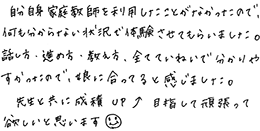 自分自身家庭教師を利用したことがなかったので、
何も分からない状況で体験させてもらいました。
話し方・進め方・教え方、全てていねいで分かりや
すかったので、娘に合ってると感じました。
先生と共に成績UP↑目指して頑張って
欲しいと思います